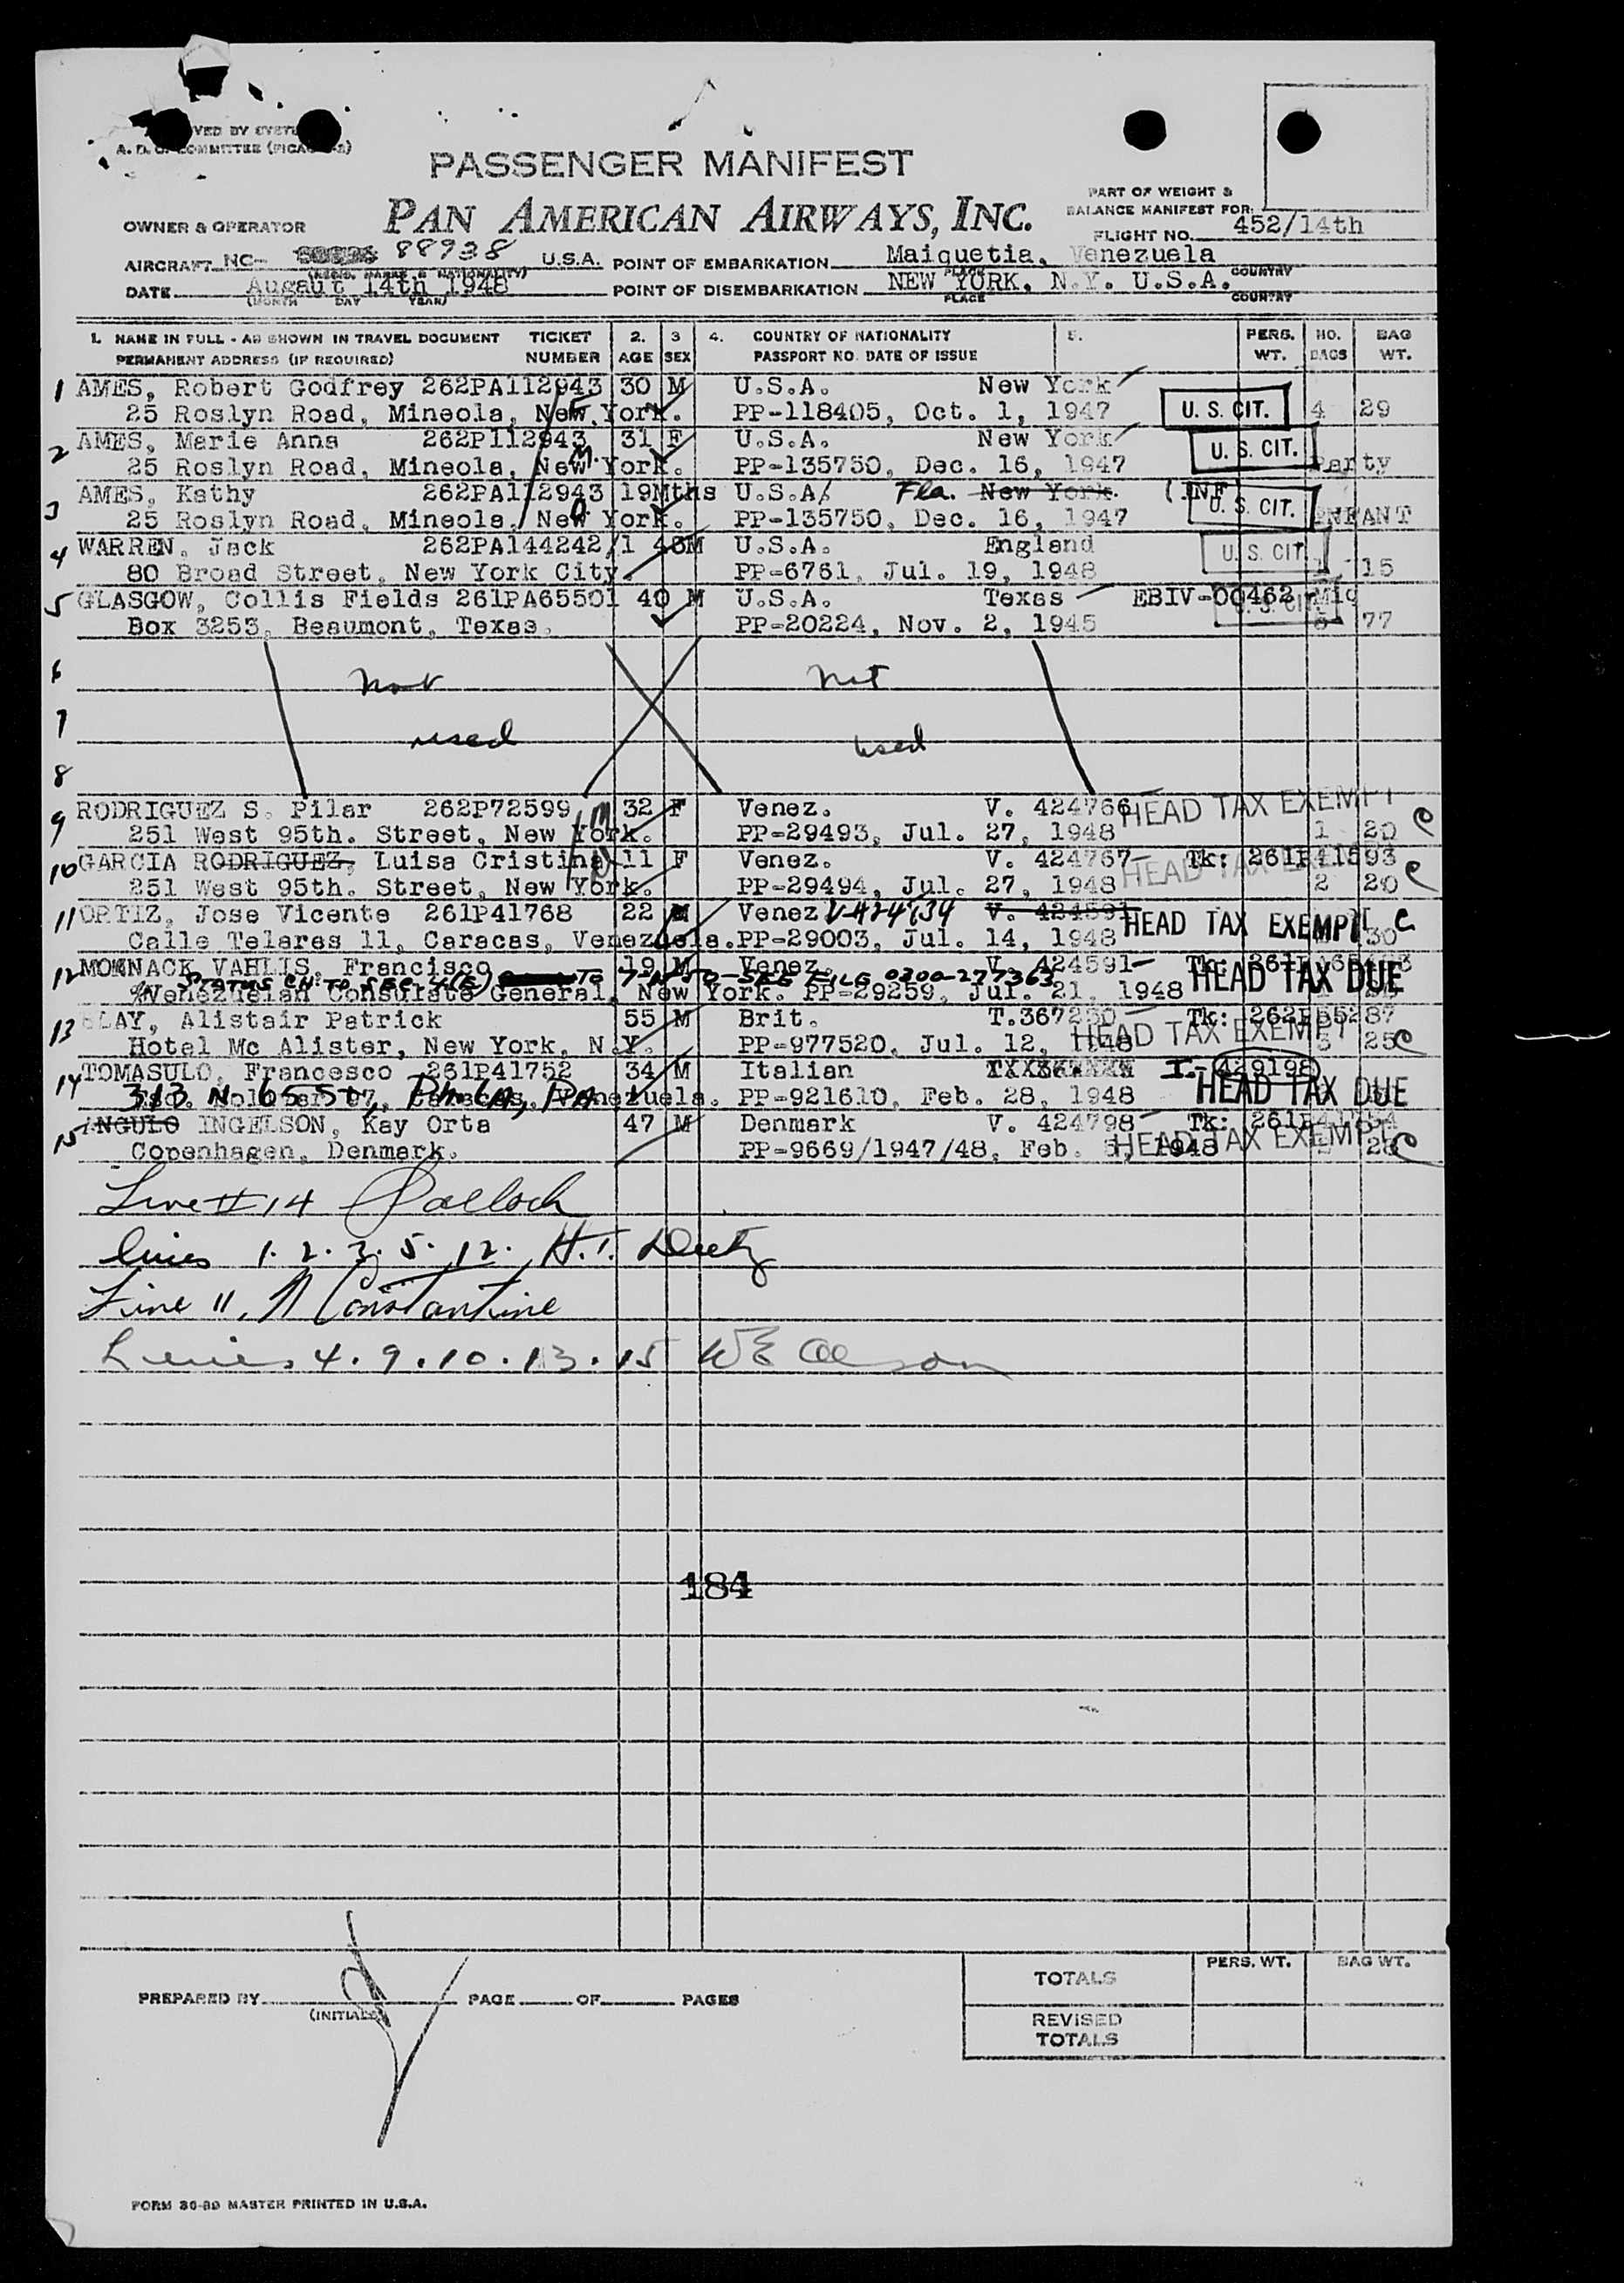 A. D. C. COMMITTEE
PASSENGER MANIFEST
PART OF WEIGHT &
BALANCE MANIFEST FOR:
OWNER & OPERATOR PAN AMERICAN AIRWAYS, INC.
FLIGHT NO. 452/14th
AIRCRAFT NC- 88938 U.S.A. POINT OF EMBARKATION Maiquetia, Venezuela
(REGIS. MARKS & NATIONALITY) PLACE COUNTRY
DATE Augaut 14th 1948 POINT OF DISEMBARKATION NEW YORK, N.Y. U.S.A.
(MONTH DAY YEAR) PLACE COUNTRY
1. NAME IN FULL - AS SHOWN IN TRAVEL DOCUMENT TICKET 2. 3 4. COUNTRY OF NATIONALITY 5. PERS. NO. BAG
PERMANENT ADDRESS (IF REQUIRED) NUMBER AGE SEX PASSPORT NO. DATE OF ISSUE WT. BAGS WT.
1 AMES, Robert Godfrey 262PA112943 30 M U.S.A. New York
25 Roslyn Road, Mineola, New York. PP-118405, Oct. 1, 1947 U. S. CIT. 4 29
2 AMES, Marie Anna 262P112943 31 F U.S.A. New York
25 Roslyn Road, Mineola, New York. PP-135750, Dec. 16, 1947 U. S. CIT. Party
3 AMES, Kathy 262PA112943 19Mths U.S.A. Fla. New York. (INF
25 Roslyn Road, Mineola, New York. PP-135750, Dec. 16, 1947 U. S. CIT. INFANT
4 WARREN, Jack 262PA144242/1 48M U.S.A. England
80 Broad Street, New York City. PP-6761, Jul. 19, 1948 U. S. CIT. 15
5 GLASGOW, Collis Fields 261PA65501 40 M U.S.A. Texas EBIV-00462 Mig
Box 3253, Beaumont, Texas. PP-20224, Nov. 2, 1945 U. S. CIT. 77
6 not not
7 used used
8
9 RODRIGUEZ S. Pilar 262P72599 32 F Venez. V. 424766 HEAD TAX EXEMPT
251 West 95th. Street, New York. PP-29493, Jul. 27, 1948 1 20 C
10 GARCIA RODRIGUEZ, Luisa Cristina 11 F Venez. V. 424767 Tk: 261P41593
251 West 95th. Street, New York. PP-29494, Jul. 27, 1948 HEAD TAX EXEMPT 2 20 C
11 ORTIZ, Jose Vicente 261P41768 22 M Venez V-424734 V. 424591
Calle Telares 11, Caracas, Venezuela. PP-29003, Jul. 14, 1948 HEAD TAX EXEMPT 30 C
12 VAHLIS, Francisco 19 M Venez. V. 424591
STATUS CH. TO SEC 4(E) TO SEE FILE 0300-277363
%Venezuelan Consulate General, New York. PP-29259, Jul. 21, 1948 HEAD TAX DUE
13 Alistair Patrick 55 M Brit. Tk:
Hotel Mc Alister, New York, N.Y. PP-977520, Jul. 12, 1948 HEAD TAX EXEMPT 25 C
14 TOMASULO, Francesco 261P41752 34 M Italian I.- 429198
313 N. 65 St, Phila, Pa. PP-921610, Feb. 28, 1948 HEAD TAX DUE
15 ANGULO INGELSON, Kay Orta 47 M Denmark V. 424798 Tk:
Copenhagen, Denmark. PP-9669/1947/48, Feb. 1948 HEAD TAX EXEMPT C
Line # 14
lines 1. 2. 3. 5. 12. H.T.
Line 11, N Constantine
Lines 4. 9. 10. 13. 15
184
TOTALS PERS. WT. BAG WT.
PREPARED BY PAGE OF PAGES
(INITIALS)
REVISED
TOTALS
MASTER PRINTED IN U.S.A.